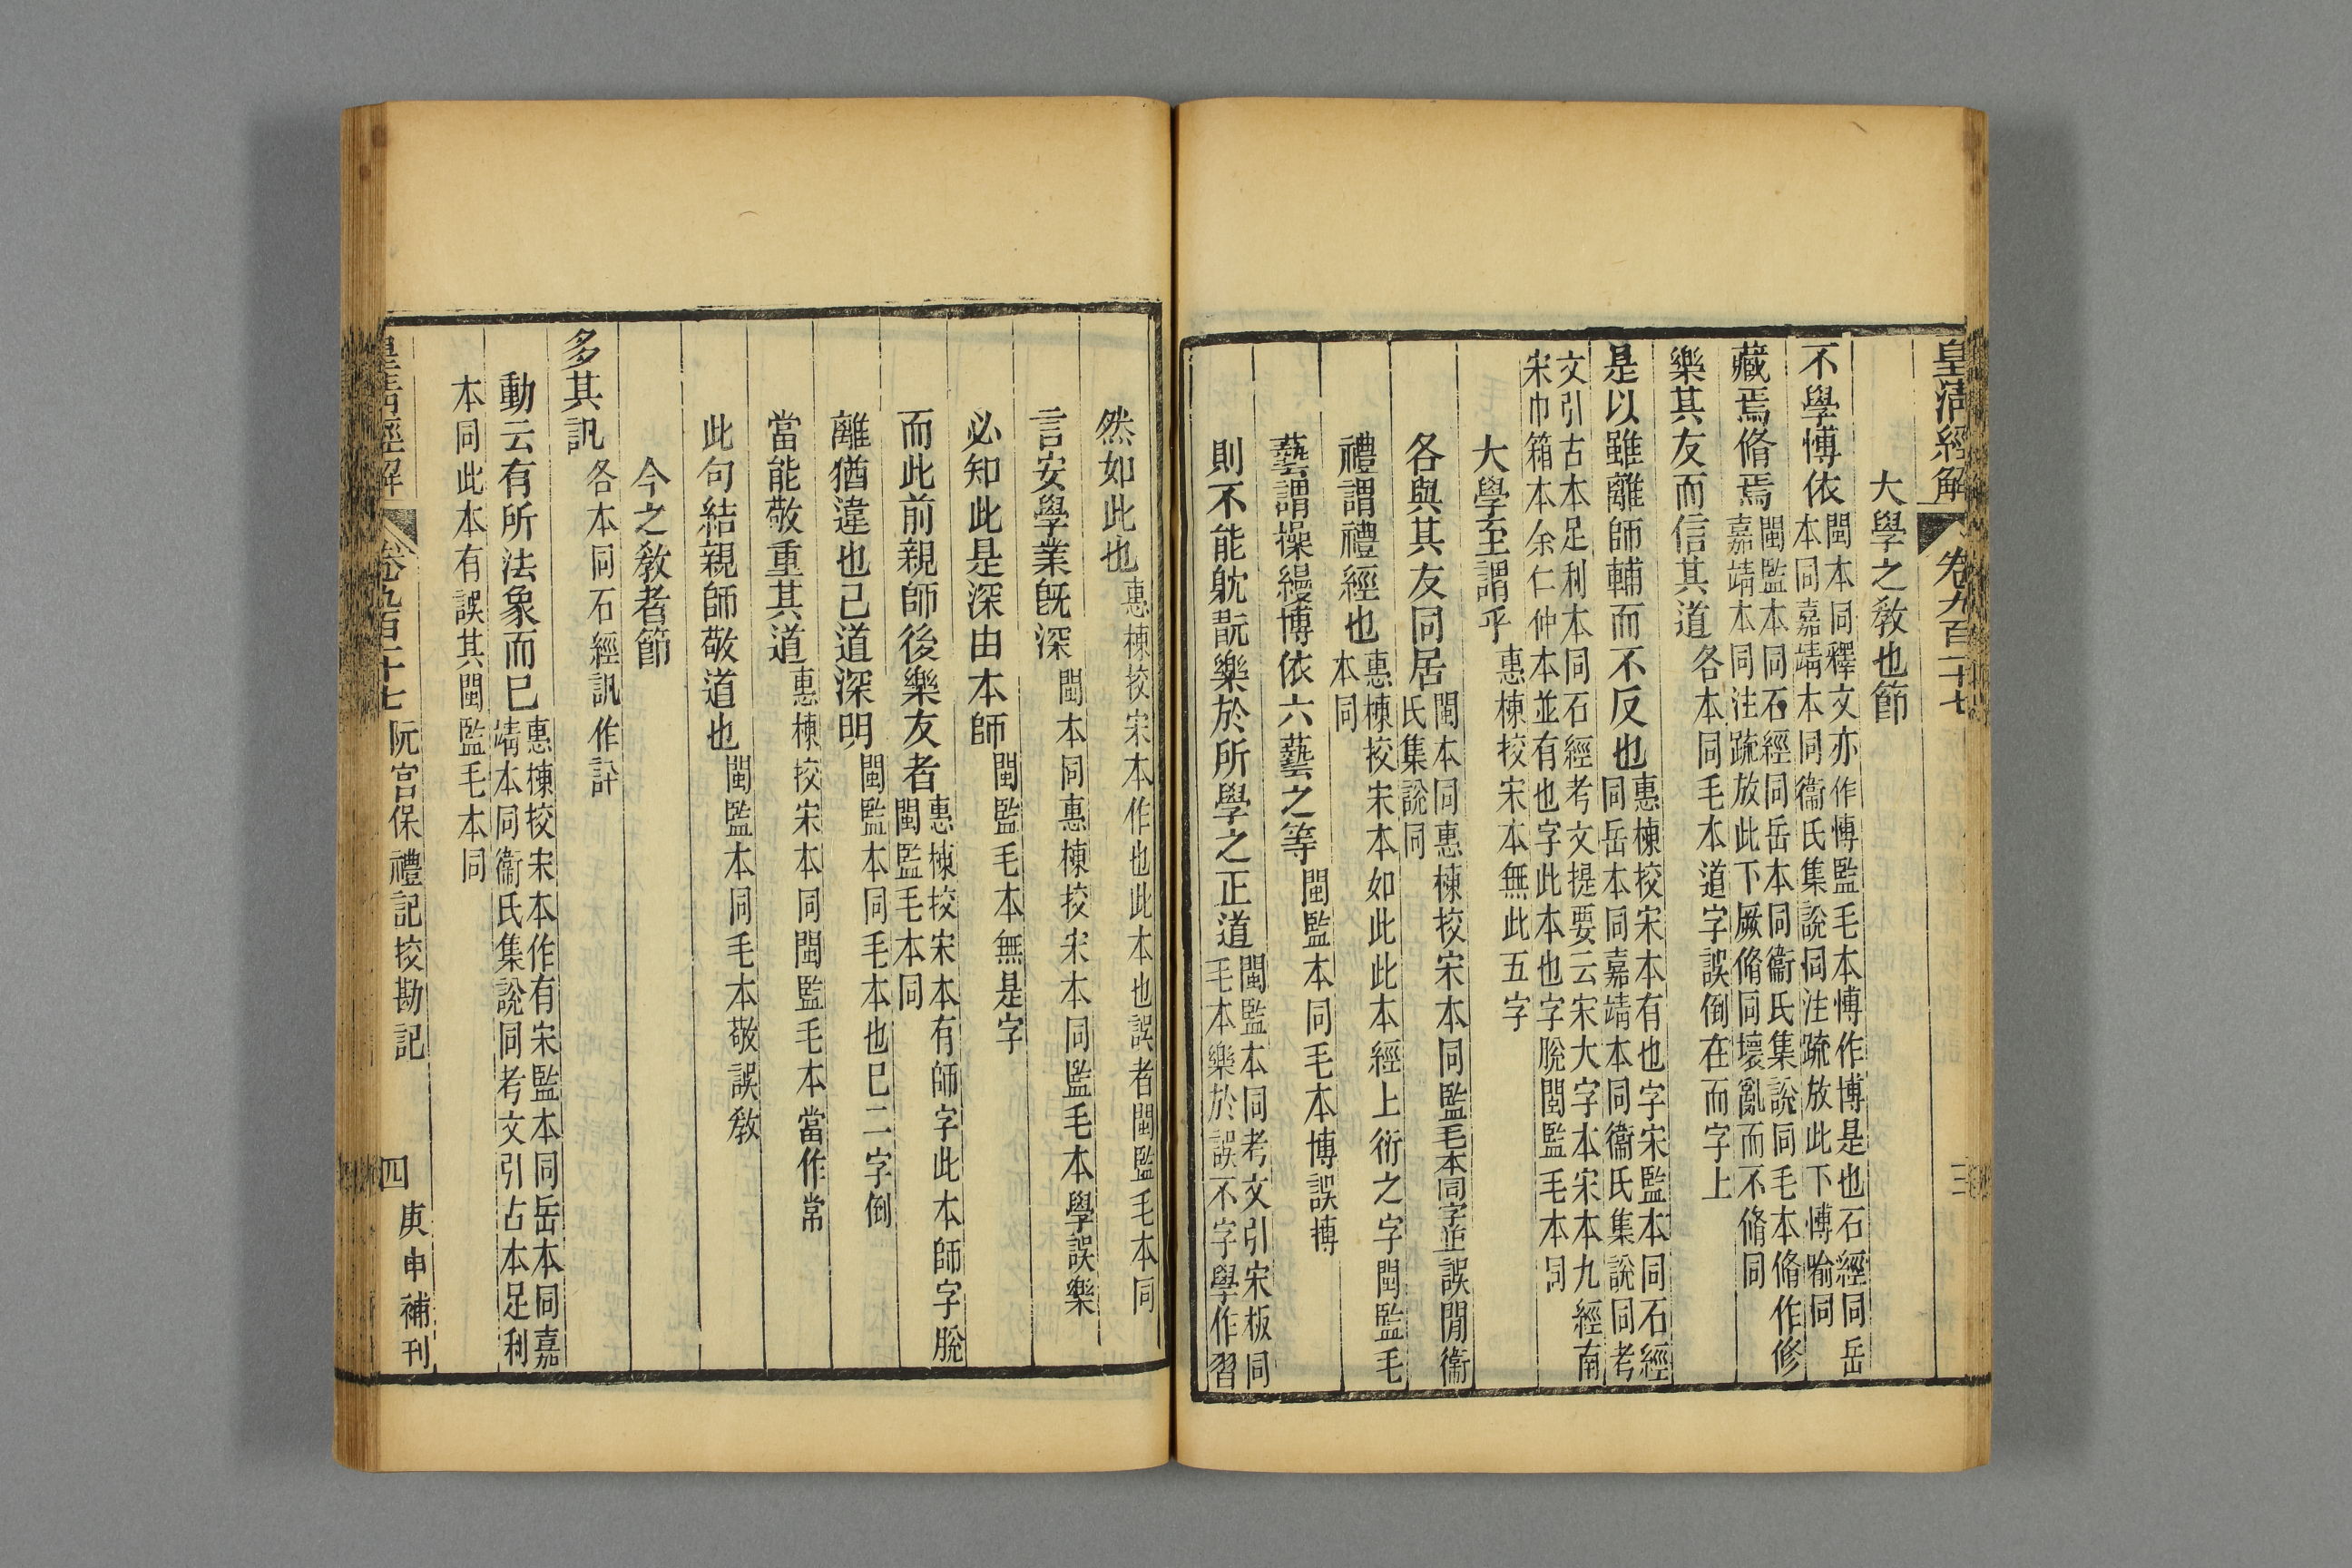 皇清經解 卷九百二十七 三
大學之敎也節
不學博依 閩本同釋文亦作博監毛本愽作博是也石經同岳
本同嘉靖本同衞氏集說同注疏放此下愽喻同
藏焉脩焉 閩監本同石經同岳本同衞氏集說同毛本脩作修
嘉靖本同注疏放此下厥脩同壞亂而不脩同
樂其友而信其道 各本同毛本道字誤倒在而字上
是以雖離師輔而不反也 惠棟挍宋本有也字宋監本同石經
同岳本同嘉靖本同衞氏集說同考
文引古本足利本同石經考文提要云宋大字本宋本九經南
宋巾箱本余仁仲本並有也字此本也字脫閩監毛本同
大學至謂乎 惠棟挍宋本無此五字
各與其友同居 閩本同惠棟挍宋本同監毛本同字並誤閒衞
氏集說同
禮謂禮經也 惠棟挍宋本如此此本經上衍之字閩監毛
本同
藝謂操縵博依六藝之等 閩監本同毛本博誤摶
則不能躭翫樂於所學之正道 閩監本同考文引宋板同
毛本樂於誤不字學作習
然如此也 惠棟挍宋本作也此本也誤者閩監毛本同
言安學業旣深 閩本同惠棟挍宋本同監毛本學誤樂
必知此是深由本師 閩監毛本無是字
而此前親師後樂友者 惠棟挍宋本有師字此本師字脫
閩監毛本同
離猶違也己道深明 閩監本同毛本也己二字倒
當能敬重其道 惠棟挍宋本同閩監毛本當作常
此句結親師敬道也 閩監本同毛本敬誤敎
今之敎者節
多其訊 各本同石經訊作訙
動云有所法象而已 惠棟挍宋本作有宋監本同岳本同嘉
靖本同衞氏集說同考文引古本足利
本同此本有誤其閩監毛本同
皇清經解 卷九百二十七 阮宮保禮記挍勘記 四 庚申補刊